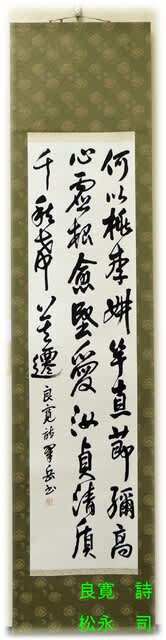 何以桃李妍竿直節彌高
心虚根愈堅愛汝貞清質
千秋希莫遷 良寛詩 翠岳書
良寛 詩
松永 司